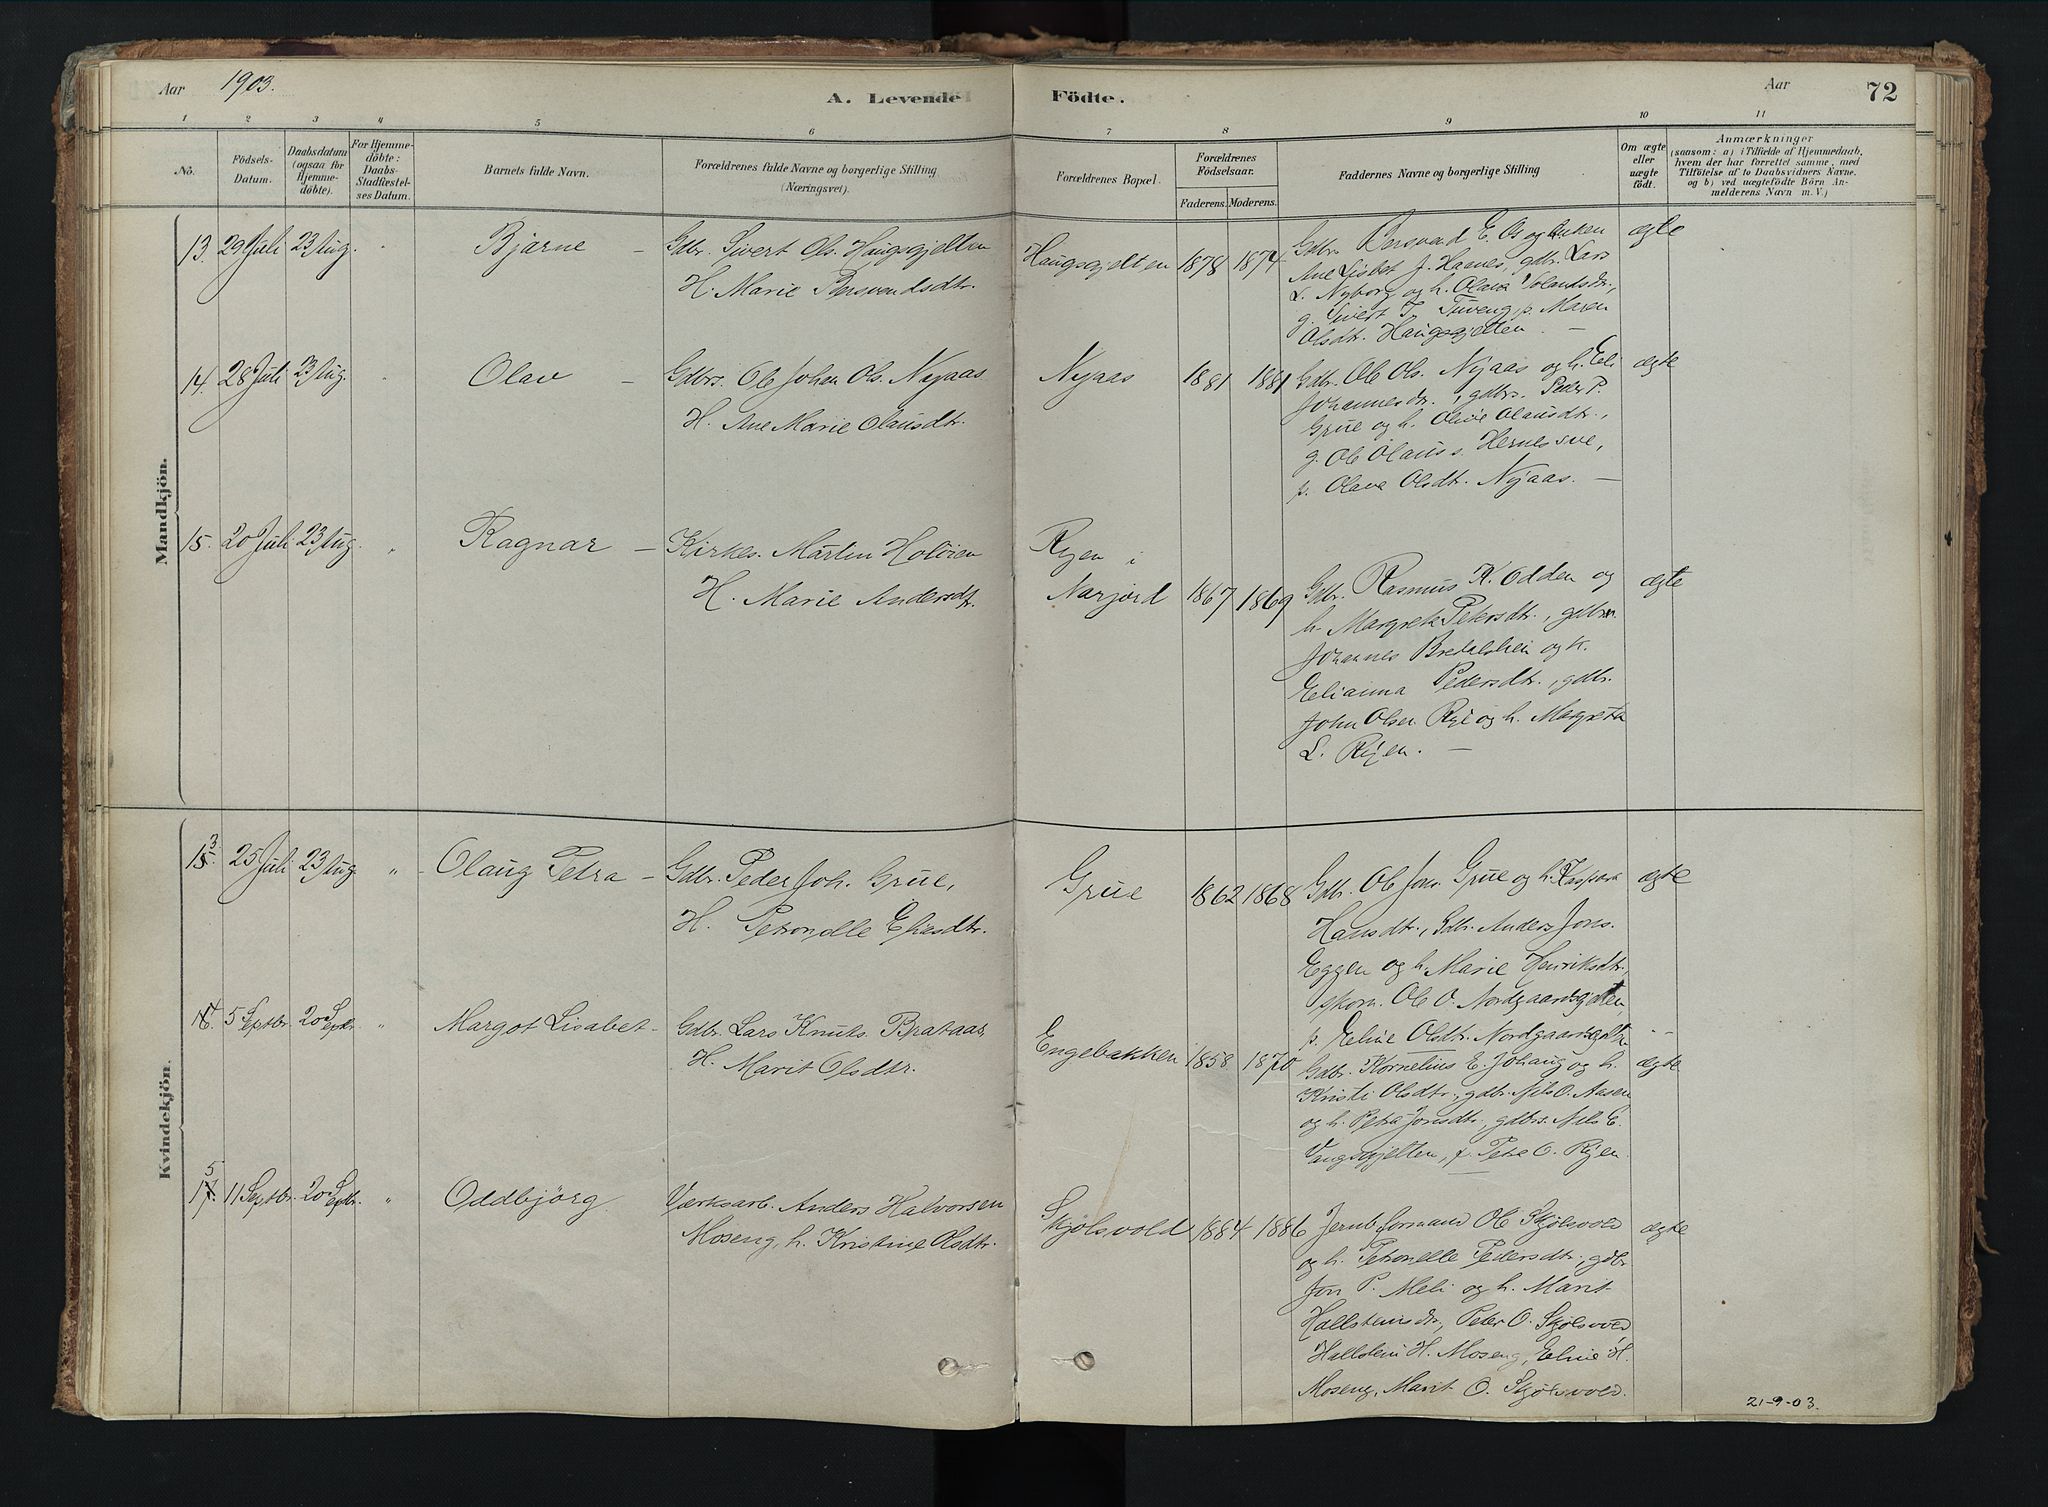 Aar 1903.
A. Levende
Födte.
Aar
72
1 2 3 4 5 6 7 8 9 10 11
No.
Födsels-Datum.
Daabsdatum (ogsaa for Hjemmedöbte).
For Hjemmedöbte: Daabs-Stadfæstelses Datum.
Barnets fulde Navn.
Forældrenes fulde Navne og borgerlige Stilling
(Næringsvei).
Forældrenes Bopæl.
Forældrenes Födselsaar.
Faderens. Moderens.
Faddernes Navne og borgerlige Stilling
Om ægte eller uægte födt.
Anmærkninger
(saasom: a) i Tilfælde af Hjemmedaab,
hvem der har forrettet samme, med
Tilföielse af to Daabsvidners Navne.
og b) ved uægtefödte Börn Anmelderens Navn m. V.)
Mandkjön.
13. 29 Juli 23 Aug. " Bjarne –
Gdbr. Sivert Ols. Haugsgjelten
H. Marie Bersvendsdtr.
Haugsgjelten 1878 1874
Gdbr. Bersvend E. Os og enken
Ane Lisbet J. Haanes, gdbr. Lars
L. Nyborg og h. Olava
g. Sivert T. Tuveng, p. Maren
Olsdtr. Haugsgjelten. –
ægte
14. 28 Juli 23 Aug. " Olav –
Gdbrs. Ole Johan Ols. Nyaas
H. Ane Marie Olausdtr.
Nyaas 1881 1881
Gdbr. Ole Ols. Nyaas og h. Eli
Johannesdtr., gdbr. Peder P.
Grue og h. Oline Olausdtr.,
g. Ole Olaus s. Hernes sve,
p. Olava Olsdtr. Nyaas. –
ægte
15. 20 Juli 23 Aug. " Ragnar –
Kirkes. Martin Holöien
H. Marie Andersdtr.
Ryen i
Narjord 1867 1869
Gdbr. Rasmus K. Odden og
h. Margrete Petersdtr., gdbr.
Johannes Bredalslien og k.
Elianna Pedersdtr., gdbr.
John Olsen Rye og h. Margreta
L. Ryen. –
ægte
Kvindekjön.
13. 25 Juli 23 Aug. " Olaug Petra –
Gdbr. Peder Joh. Grue,
H. Petronelle Eliasdtr.
Grue 1862 1868
Gdbr. Ole Jons. Grue og h. Kaspara
Hansdtr., Gdbr. Anders Jons.
Eggen og h. Marie Henriksdtr.,
Ole O. Nordgaardsgjelten,
p. Eline Olsdtr. Nordgaardsgjelten
ægte
14. 5 Septbr. 20 Septbr. " Margot Lisabet –
Gdbr. Lars Knuts. Brataas,
H. Marit Olsdtr.
Engebakken 1858 1870
Gdbr. Kornelius E. Johaug og h.
Kristi Olsdtr., gdbr. Nils O. Aasen
og h. Petra Jonsdtr., gdbrs. Nils E.
Vangsgjelten, p. Petra O. Ryen.
ægte
15. 11 Septbr. 20 Septbr. " Oddbjörg.
Verksarb. Anders Halvorsen
Moseng, h. Kristine Olsdtr.
Skjölsvold 1884 1886
Jernb.formand Ole Skjölsvold
og h. Petronelle Pedersdtr., gdbr.
Jon P. Meli og h. Marit
Hallsteinsdtr., Peter O. Skjölsvold
Hallstein H. Moseng, Eline H.
Moseng, Marit O. Skjölsvold.
ægte
21-9-03.